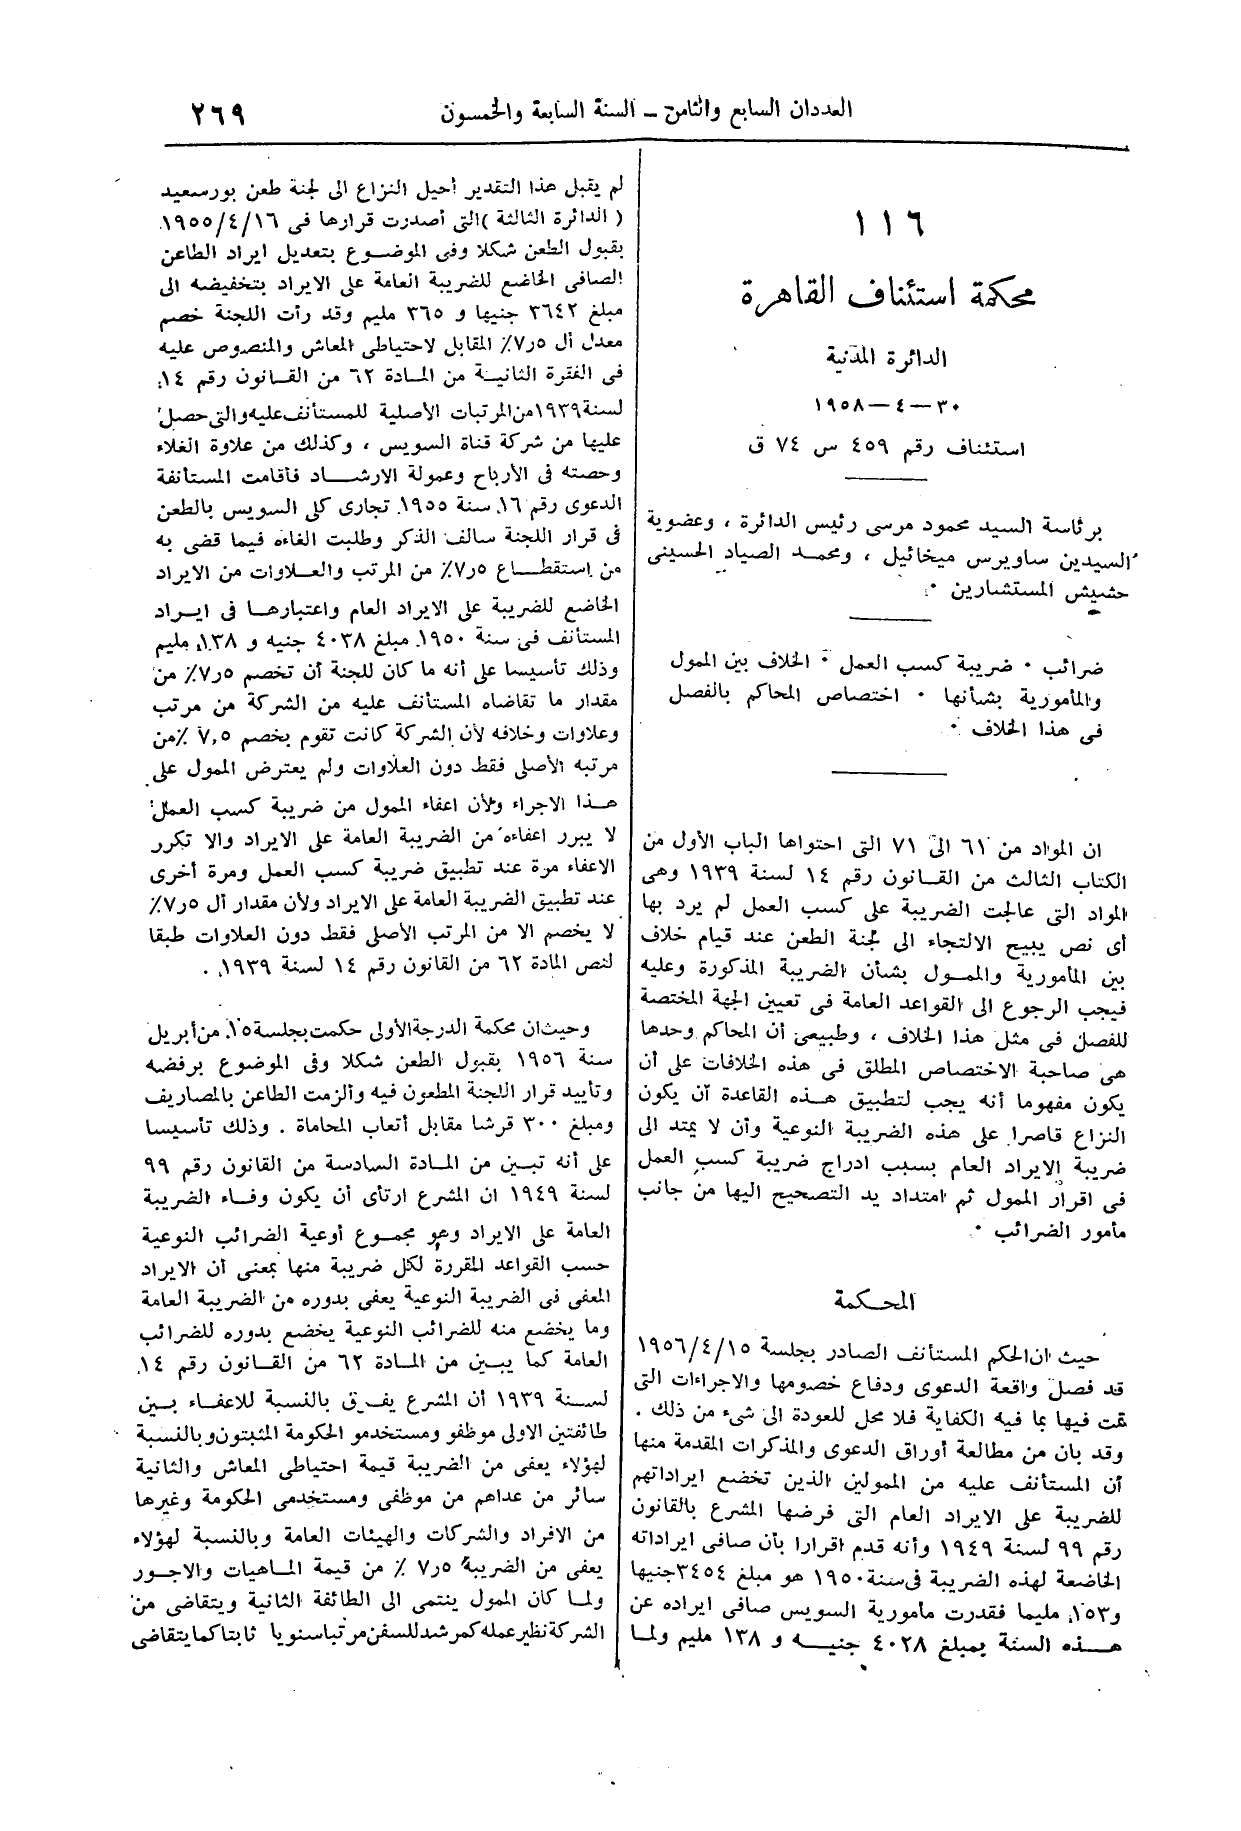 العددان السابع والثامن — السنة السابعة والخمسون
٢٦٩
١١٦
محكمة استئناف القاهرة
الدائرة المدنية
٣٠—٤—١٩٥٨
استئناف رقم ٤٥٩ س ٧٤ ق
برئاسة السيد محمود مرسى رئيس الدائرة ، وعضوية
السيدين ساويرس ميخائيل ، ومحمد الصياد الحسينى
حشيش المستشارين .
ضرائب . ضريبة كسب العمل . الخلاف بين الممول
والمأمورية بشأنها . اختصاص المحاكم بالفصل
فى هذا الخلاف .
ان المواد من ٦١ الى ٧١ التى احتواها الباب الأول من
الكتاب الثالث من القانون رقم ١٤ لسنة ١٩٣٩ وهى
المواد التى عالجت الضريبة على كسب العمل لم يرد بها
أى نص يبيح الالتجاء الى لجنة الطعن عند قيام خلاف
بين المأمورية والممول بشأن الضريبة المذكورة وعليه
فيجب الرجوع الى القواعد العامة فى تعيين الجهة المختصة
للفصل فى مثل هذا الخلاف ، وطبيعى أن المحاكم وحدها
هى صاحبة الاختصاص المطلق فى هذه الخلافات على أن
يكون مفهوما أنه يجب لتطبيق هذه القاعدة أن يكون
النزاع قاصرا على هذه الضريبة النوعية وأن لا يمتد الى
ضريبة الايراد العام بسبب ادراج ضريبة كسب العمل
فى اقرار الممول ثم امتداد يد التصحيح اليها من جانب
مأمور الضرائب .
المحكمة
حيث ان الحكم المستأنف الصادر بجلسة ١٩٥٦/٤/١٥
قد فصل واقعة الدعوى ودفاع خصومها والاجراءات التى
تمت فيها بما فيه الكفاية فلا محل للعودة الى شىء من ذلك .
وقد بان من مطالعة أوراق الدعوى والمذكرات المقدمة منها
أن المستأنف عليه من الممولين الذين تخضع ايراداتهم
للضريبة على الايراد العام التى فرضها المشرع بالقانون
رقم ٩٩ لسنة ١٩٤٩ وأنه قدم اقرارا بأن صافى ايراداته
الخاضعة لهذه الضريبة فى سنة ١٩٥٠ هو مبلغ ٣٤٥٤ جنيها
و١٥٣ مليما فقدرت مأمورية السويس صافى ايراده عن
هذه السنة بمبلغ ٤٠٢٨ جنيه و ١٣٨ مليم ولما
لم يقبل هذا التقدير أحيل النزاع الى لجنة طعن بورسعيد
( الدائرة الثالثة ) التى أصدرت قرارها فى ١٩٥٥/٤/١٦
بقبول الطعن شكلا وفى الموضوع بتعديل ايراد الطاعن
الصافى الخاضع للضريبة العامة على الايراد بتخفيضه الى
مبلغ ٣٦٤٢ جنيها و ٣٦٥ مليم وقد رأت اللجنة خصم
معدل أل ٥ر٧٪ المقابل لاحتياطى المعاش والمنصوص عليه
فى الفقرة الثانية من المادة ٦٢ من القانون رقم ١٤
لسنة ١٩٣٩ من المرتبات الأصلية للمستأنف عليه والتى حصل
عليها من شركة قناة السويس ، وكذلك من علاوة الغلاء
وحصته فى الأرباح وعمولة الارشاد فأقامت المستأنفة
الدعوى رقم ١٦ سنة ١٩٥٥ تجارى كلى السويس بالطعن
فى قرار اللجنة سالف الذكر وطلبت الغاءه فيما قضى به
من استقطاع ٥ر٧٪ من المرتب والعلاوات من الايراد
الخاضع للضريبة على الايراد العام واعتبارها فى ايراد
المستأنف فى سنة ١٩٥٠ مبلغ ٤٠٣٨ جنيه و ١٣٨ مليم
وذلك تأسيسا على أنه ما كان للجنة أن تخصم ٥ر٧٪ من
مقدار ما تقاضاه المستأنف عليه من الشركة من مرتب
وعلاوات وخلافه لأن الشركة كانت تقوم بخصم ٧,٥ ٪ من
مرتبه الأصلى فقط دون العلاوات ولم يعترض الممول على
هذا الاجراء ولأن اعفاء الممول من ضريبة كسب العمل
لا يبرر اعفاءه من الضريبة العامة على الايراد والا تكرر
الاعفاء مرة عند تطبيق ضريبة كسب العمل ومرة أخرى
عند تطبيق الضريبة العامة على الايراد ولأن مقدار أل ٥ر٧٪
لا يخصم الا من المرتب الأصلى فقط دون العلاوات طبقا
لنص المادة ٦٢ من القانون رقم ١٤ لسنة ١٩٣٩ .
وحيث ان محكمة الدرجة الأولى حكمت بجلسة ١٥ من أبريل
سنة ١٩٥٦ بقبول الطعن شكلا وفى الموضوع برفضه
وتأييد قرار اللجنة المطعون فيه وألزمت الطاعن بالمصاريف
ومبلغ ٣٠٠ قرشا مقابل أتعاب المحاماة . وذلك تأسيسا
على أنه تبين من المادة السادسة من القانون رقم ٩٩
لسنة ١٩٤٩ ان المشرع ارتأى أن يكون وفاء الضريبة
العامة على الايراد وهو مجموع أوعية الضرائب النوعية
حسب القواعد المقررة لكل ضريبة منها بمعنى أن الايراد
المعفى فى الضريبة النوعية يعفى بدوره من الضريبة العامة
وما يخضع منه للضرائب النوعية يخضع بدوره للضرائب
العامة كما يبين من المادة ٦٢ من القانون رقم ١٤
لسنة ١٩٣٩ أن المشرع يفرق بالنسبة للاعفاء بين
طائفتين الاولى موظفو ومستخدمو الحكومة المثبتون وبالنسبة
لهؤلاء يعفى من الضريبة قيمة احتياطى المعاش والثانية
سائر من عداهم من موظفى ومستخدمى الحكومة وغيرها
من الافراد والشركات والهيئات العامة وبالنسبة لهؤلاء
يعفى من الضريبة ٥ر٧ ٪ من قيمة الماهيات والاجور
ولما كان الممول ينتمى الى الطائفة الثانية ويتقاضى من
الشركة نظير عمله كمرشد للسفن مرتبا سنويا ثابتا كما يتقاضى